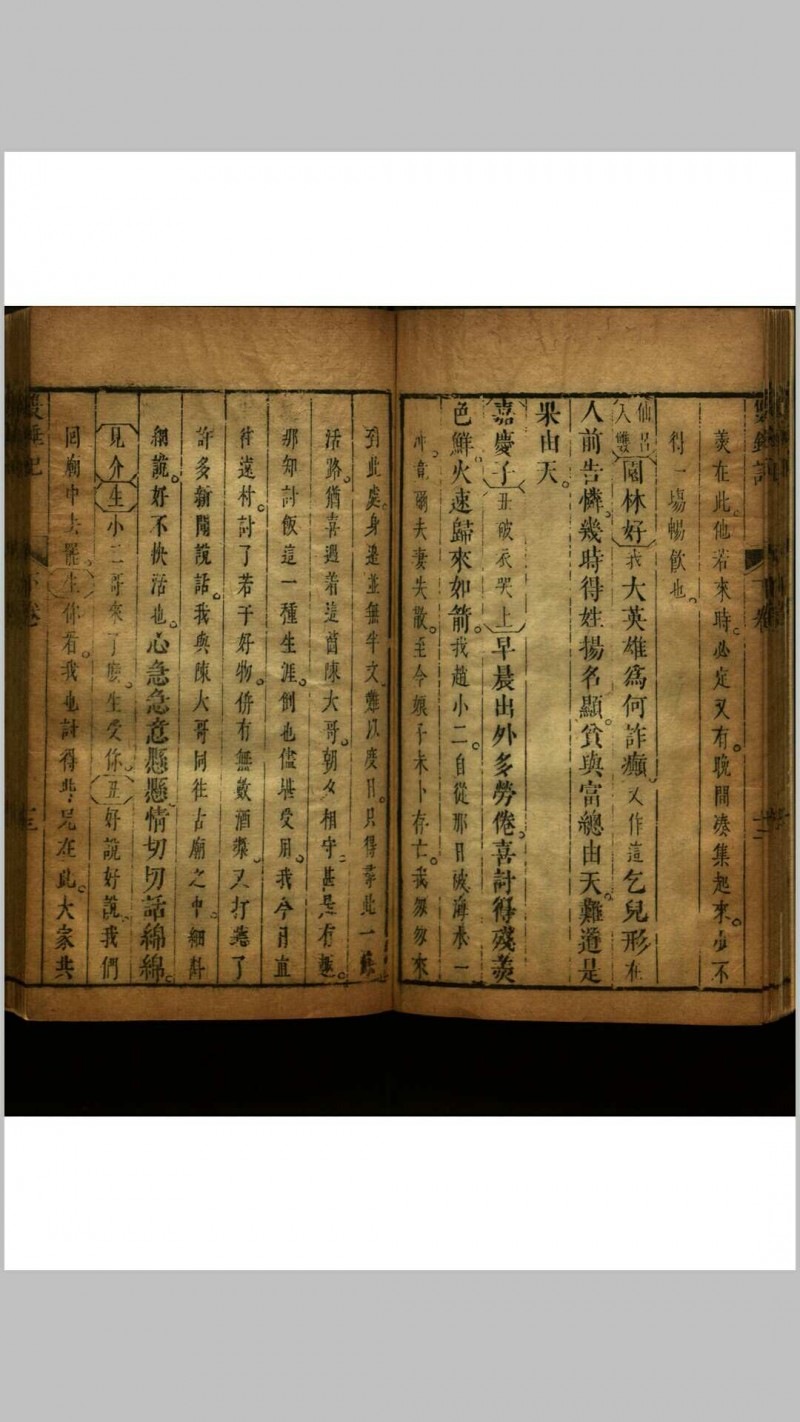 羨在此。他若來時。必定又有。晚間湊集起來。少不
得一塲暢飲也。
仙呂入雙 園林好 我大英雄爲何詐癲。又作這乞兒形在
人前告憐。幾時得姓揚名顯。貧與富總由天。難道是
果由天。
嘉慶子 丑破衣哭上 早晨出外多勞倦。喜討得殘羨
色鮮。火速歸來如箭。我趙小二。自從那日被海水一
冲。竟爾夫妻失散。至今娘子未卜存亡。我匆匆來
到此處。身邊並無半文。難以度日。只得尋此一條
活路。猶喜遇着這個陳大哥。朝夕相守。甚是有趣。
那知討飯這一種生涯。倒也儘堪受用。我今日直
往遠村。討了若干好物。併有無數酒漿。又打聽了
許多新聞說話。我與陳大哥同往古廟之中。細斟
細說。好不快活也。心急急意懸懸。情切切話綿綿。
見介 生 小二哥來了麽。生受你。丑 好說好說。我們
同廟中去罷。生 你看。我也討得些兒在此。大家共